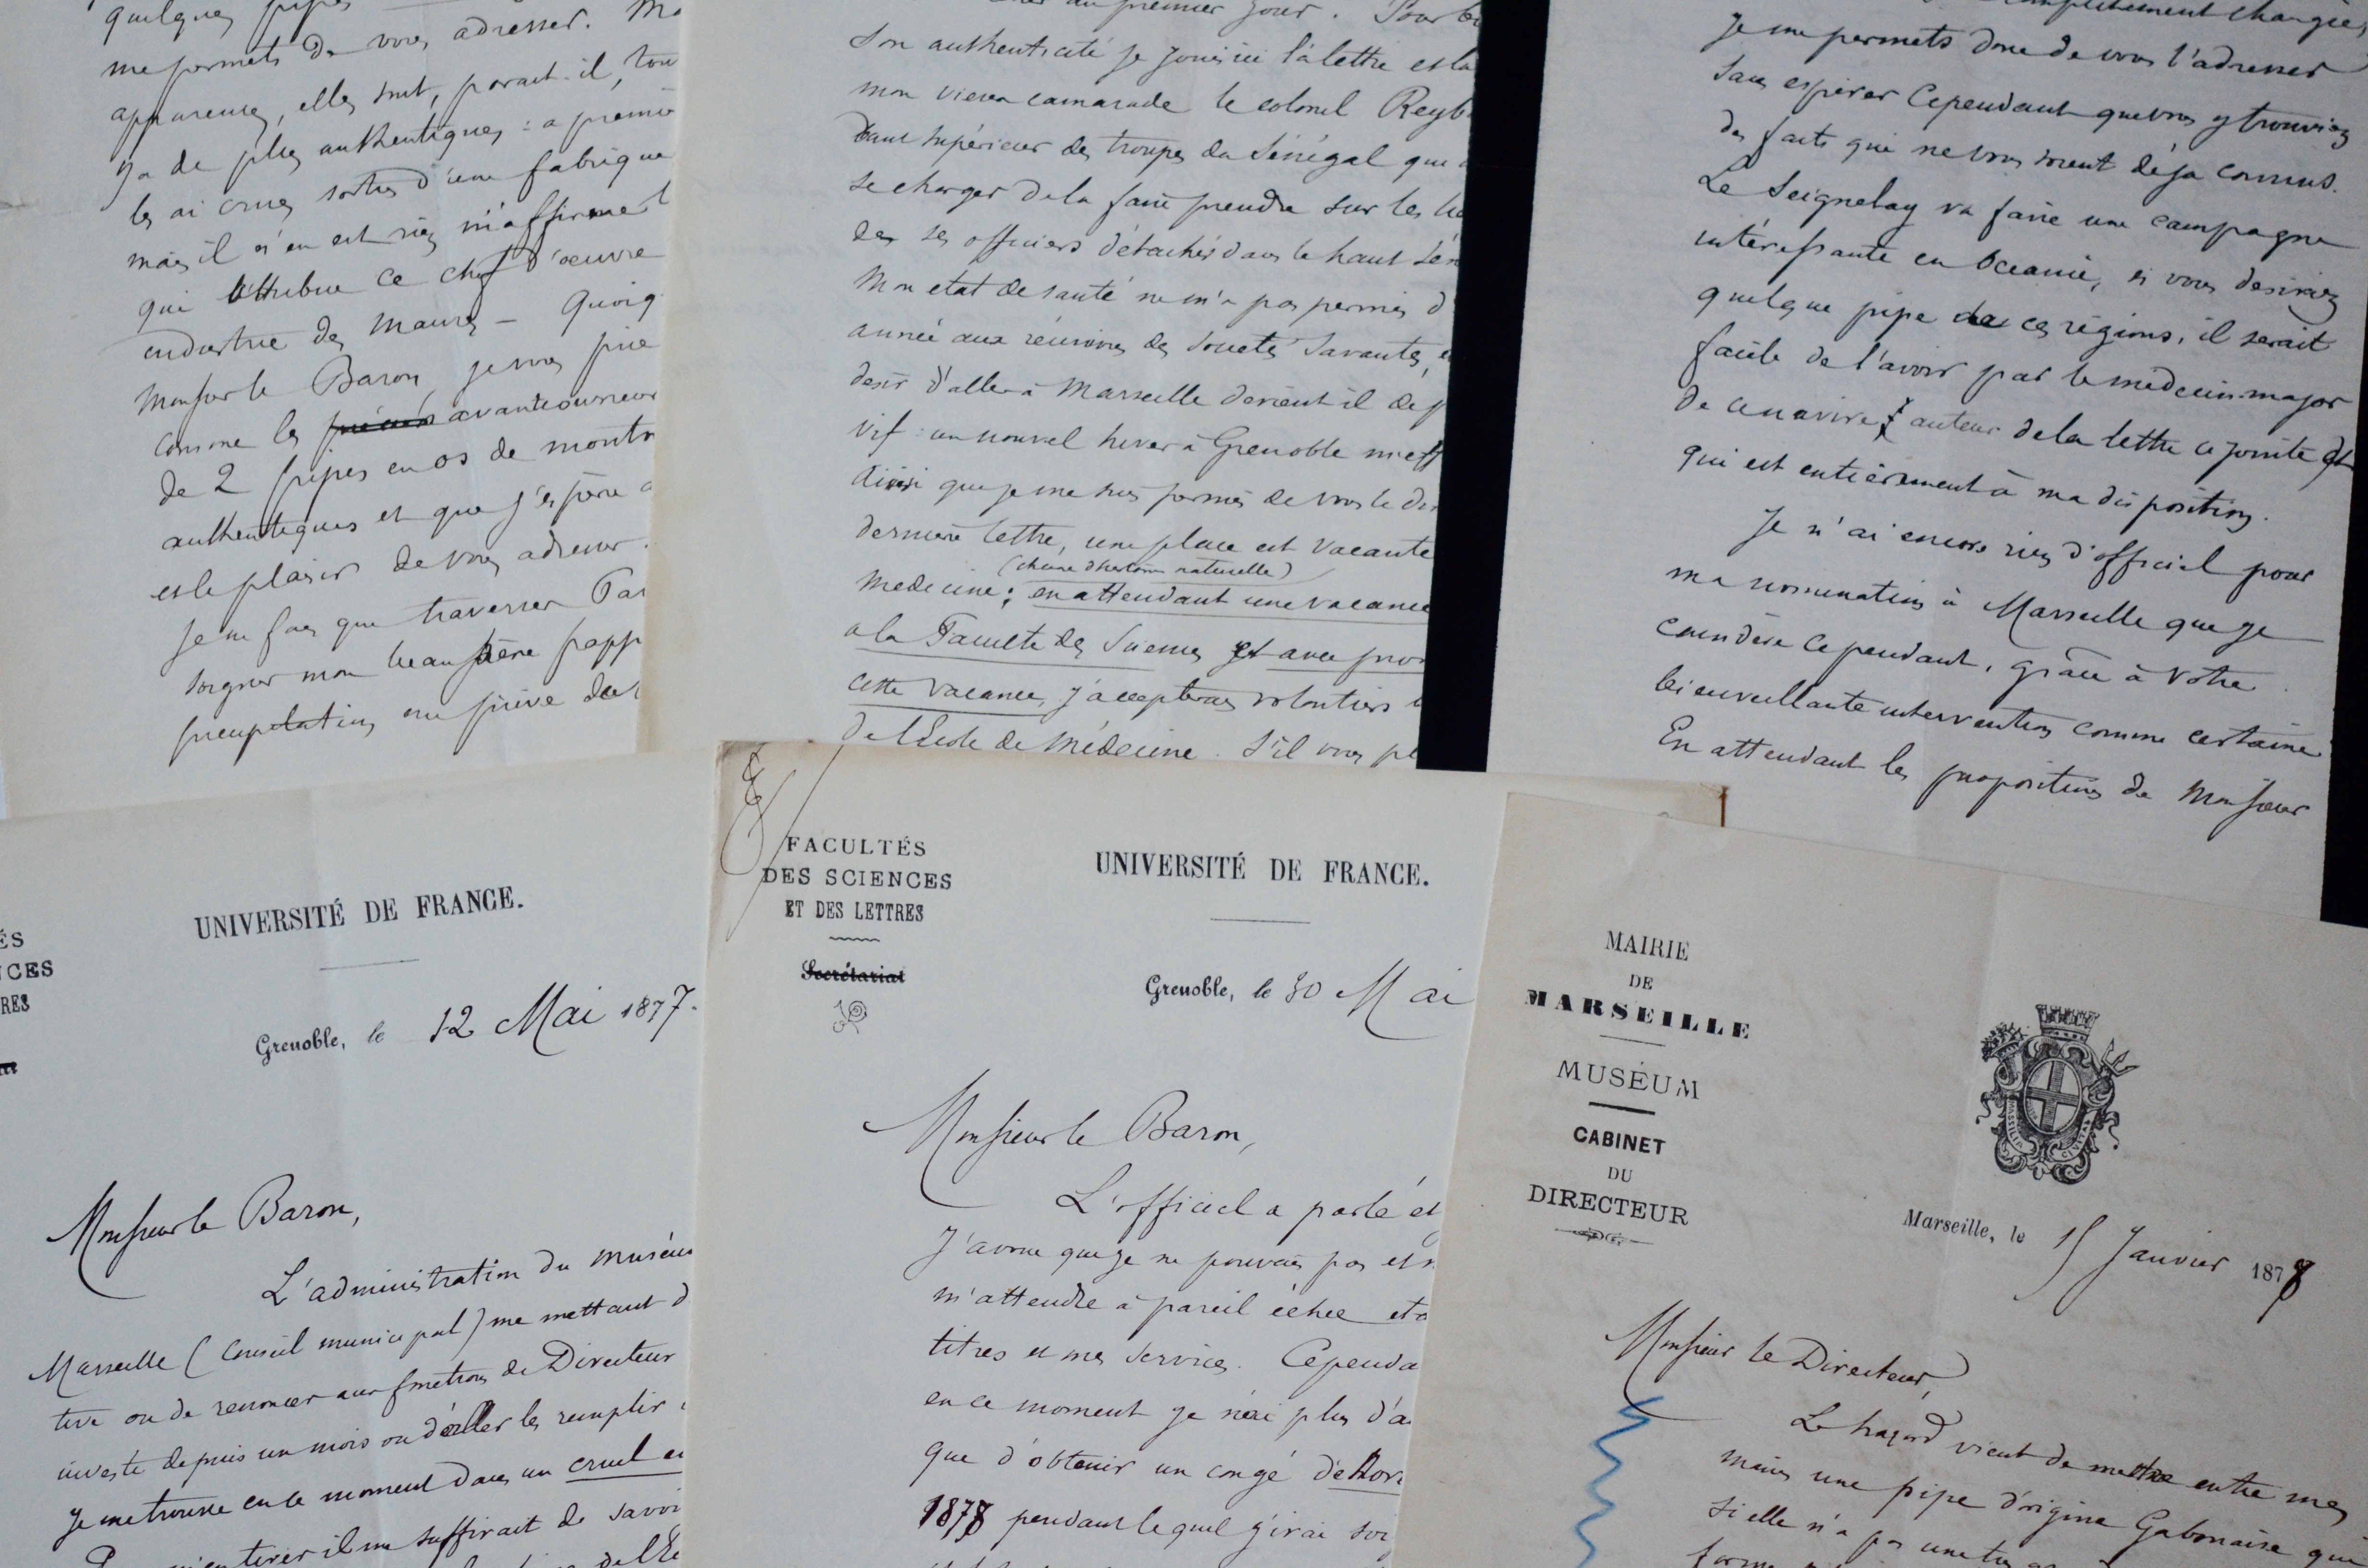 quelques pipes
me permets de vous adresser. Ma
apparences, elles sont, parait-il, tou
y a de plus authentiques : a premiè
les ai crues sorties d'une fabrique
mais il n'en est rien m'affirme l
qui attribue ce chef d'œuvre
industrie des Maures — Quoiq
Monsieur le Baron, je vous prie
comme les avant coureurs
de 2 pipes en os de mouton
authentiques et que j'espère
et le plaisir de vous adresser.
Je ne fais que traverser Par
soigner mon beau père frapp
précipitation me prive de l
au premier jour. Pour
son authenticité je joins ici la lettre et la
mon vieux camarade le colonel Reyb
dant supérieur des troupes du Sénégal que
se charger de la faire prendre sur les lie
des ses officiers détachés dans le haut Sén
Mon etat de santé ne m'a pas permis d
année aux réunions des Sociétés Savantes,
desir d'aller à Marseille devient il de p
vif : un nouvel hiver à Grenoble m'eff
Ainsi que je me suis permis de vous le dir
dernière lettre, une place est vacante
(chaire d'histoire naturelle)
médecine ; en attendant une vacance
a la Faculté des Sciences et avec pro
cette vacance, j'accepterais volontiers
de l'École de Médecine. S'il vous pl
complètement changée,
Je me permets donc de vous l'adresser
sans espérer cependant que vous y trouviez
des faits qui ne vous soient déja connus.
Le Seignelay va faire une campagne
intéressante en Océanie, si vous desiriez
quelque pipe de ces régions, il serait
facile de l'avoir par le médecin-major
de ce navire, auteur de la lettre ci jointe et
qui est entièrement à ma disposition.
Je n'ai encore rien d'officiel pour
ma nomination à Marseille que je
considère cependant, grâce à votre
bienveillante intervention comme certaine
En attendant les propositions de Monsieur
ÉS
NCES
RES
UNIVERSITÉ DE FRANCE.
Grenoble, le 12 Mai 1877.
Monsieur le Baron,
L'administration du muséum
Marseille (Conseil municipal) me mettant d
tive ou de renoncer aux fonctions de Directeur
investi depuis un mois ou d'aller les remplir
je me trouve en ce moment dans un cruel em
m'en tirer il me suffirait de savoir
FACULTÉS
DES SCIENCES
ET DES LETTRES
Secrétariat
UNIVERSITÉ DE FRANCE.
Grenoble, le 30 Mai
Monsieur le Baron,
L'officiel a parlé et
j'avoue que je ne pouvais pas et n
m'attendre à pareil échec et a
titres et mes services. Cependa
en ce moment je n'ai plus d'a
que d'obtenir un congé
1878 pendant lequel j'irai soi
MAIRIE
DE
MARSEILLE
MUSÉUM
CABINET
DU
DIRECTEUR
Marseille, le 15 Janvier 1878
Monsieur le Directeur,
Le hazard vient de mettre entre mes
mains une pipe d'origine Gabonaise qui
si elle n'a pas une
forme